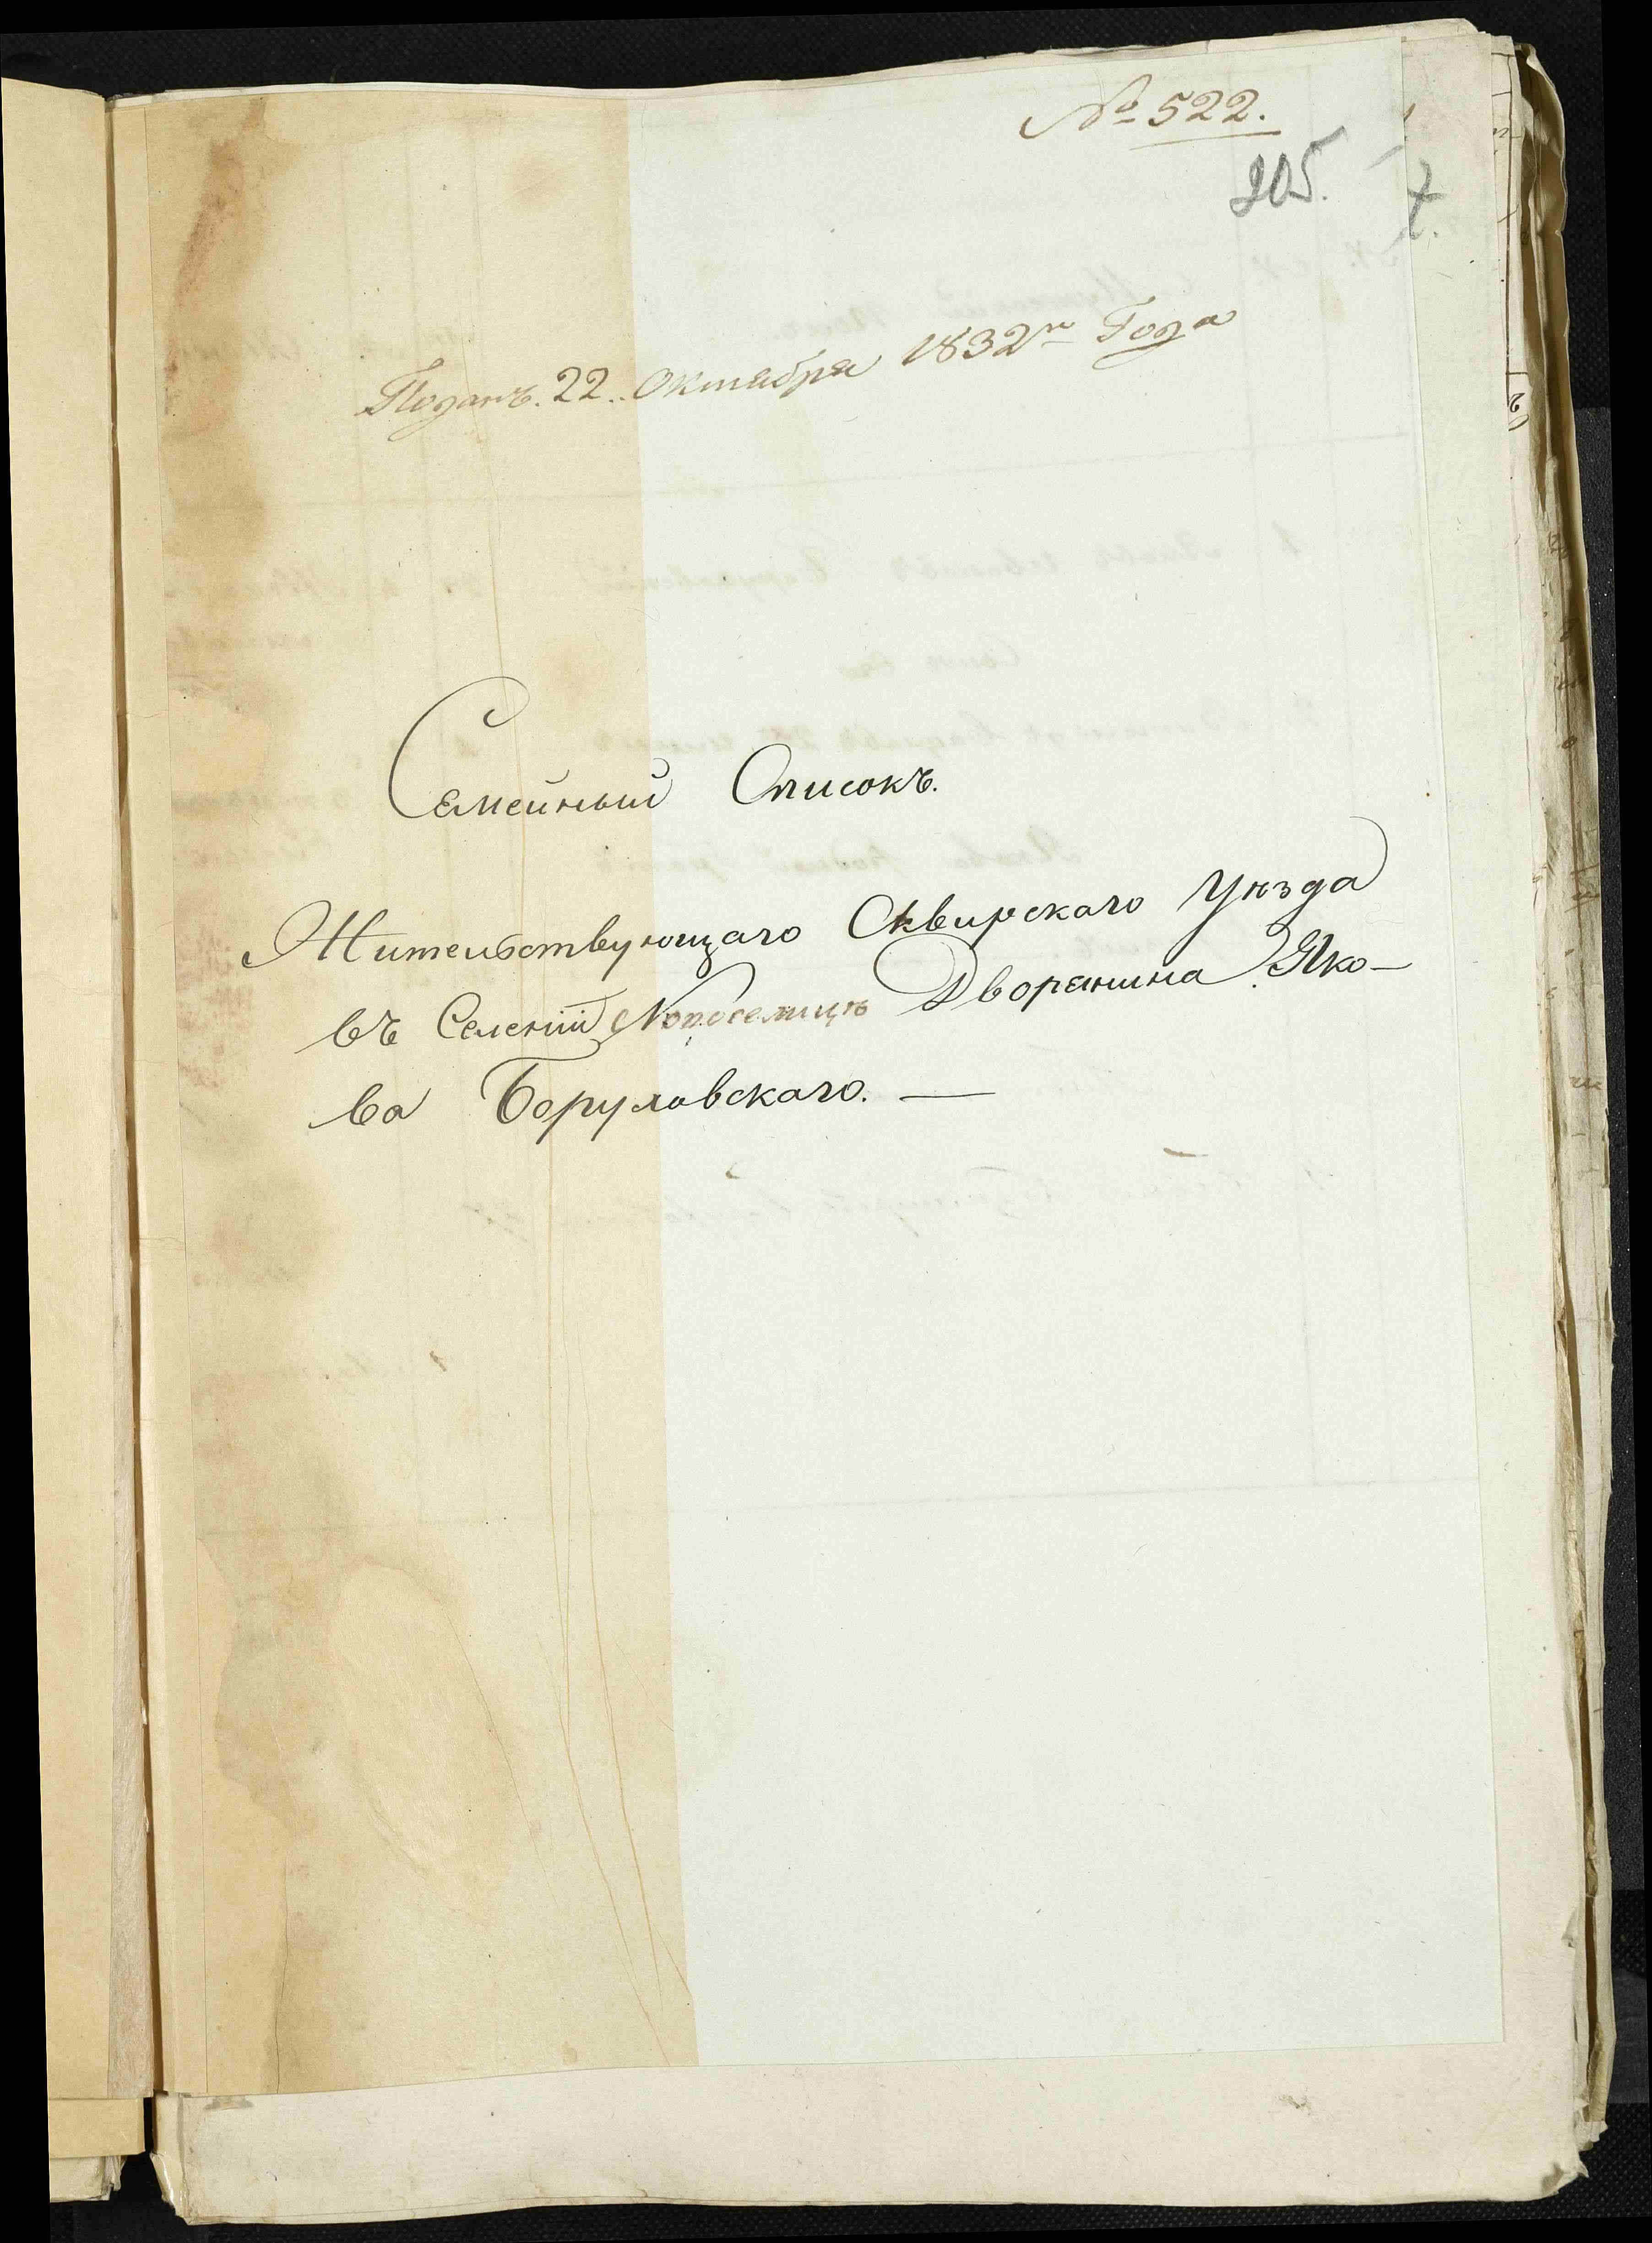 № 522.
205.
7.
Поданъ. 22.. Октября 1832го Года
Семейный Списокъ.
Жительствующаго Сквирскаго Уѣзда
въ Селеніи Новоселицѣ Дворянина Яко-
ва Боруловскаго. —